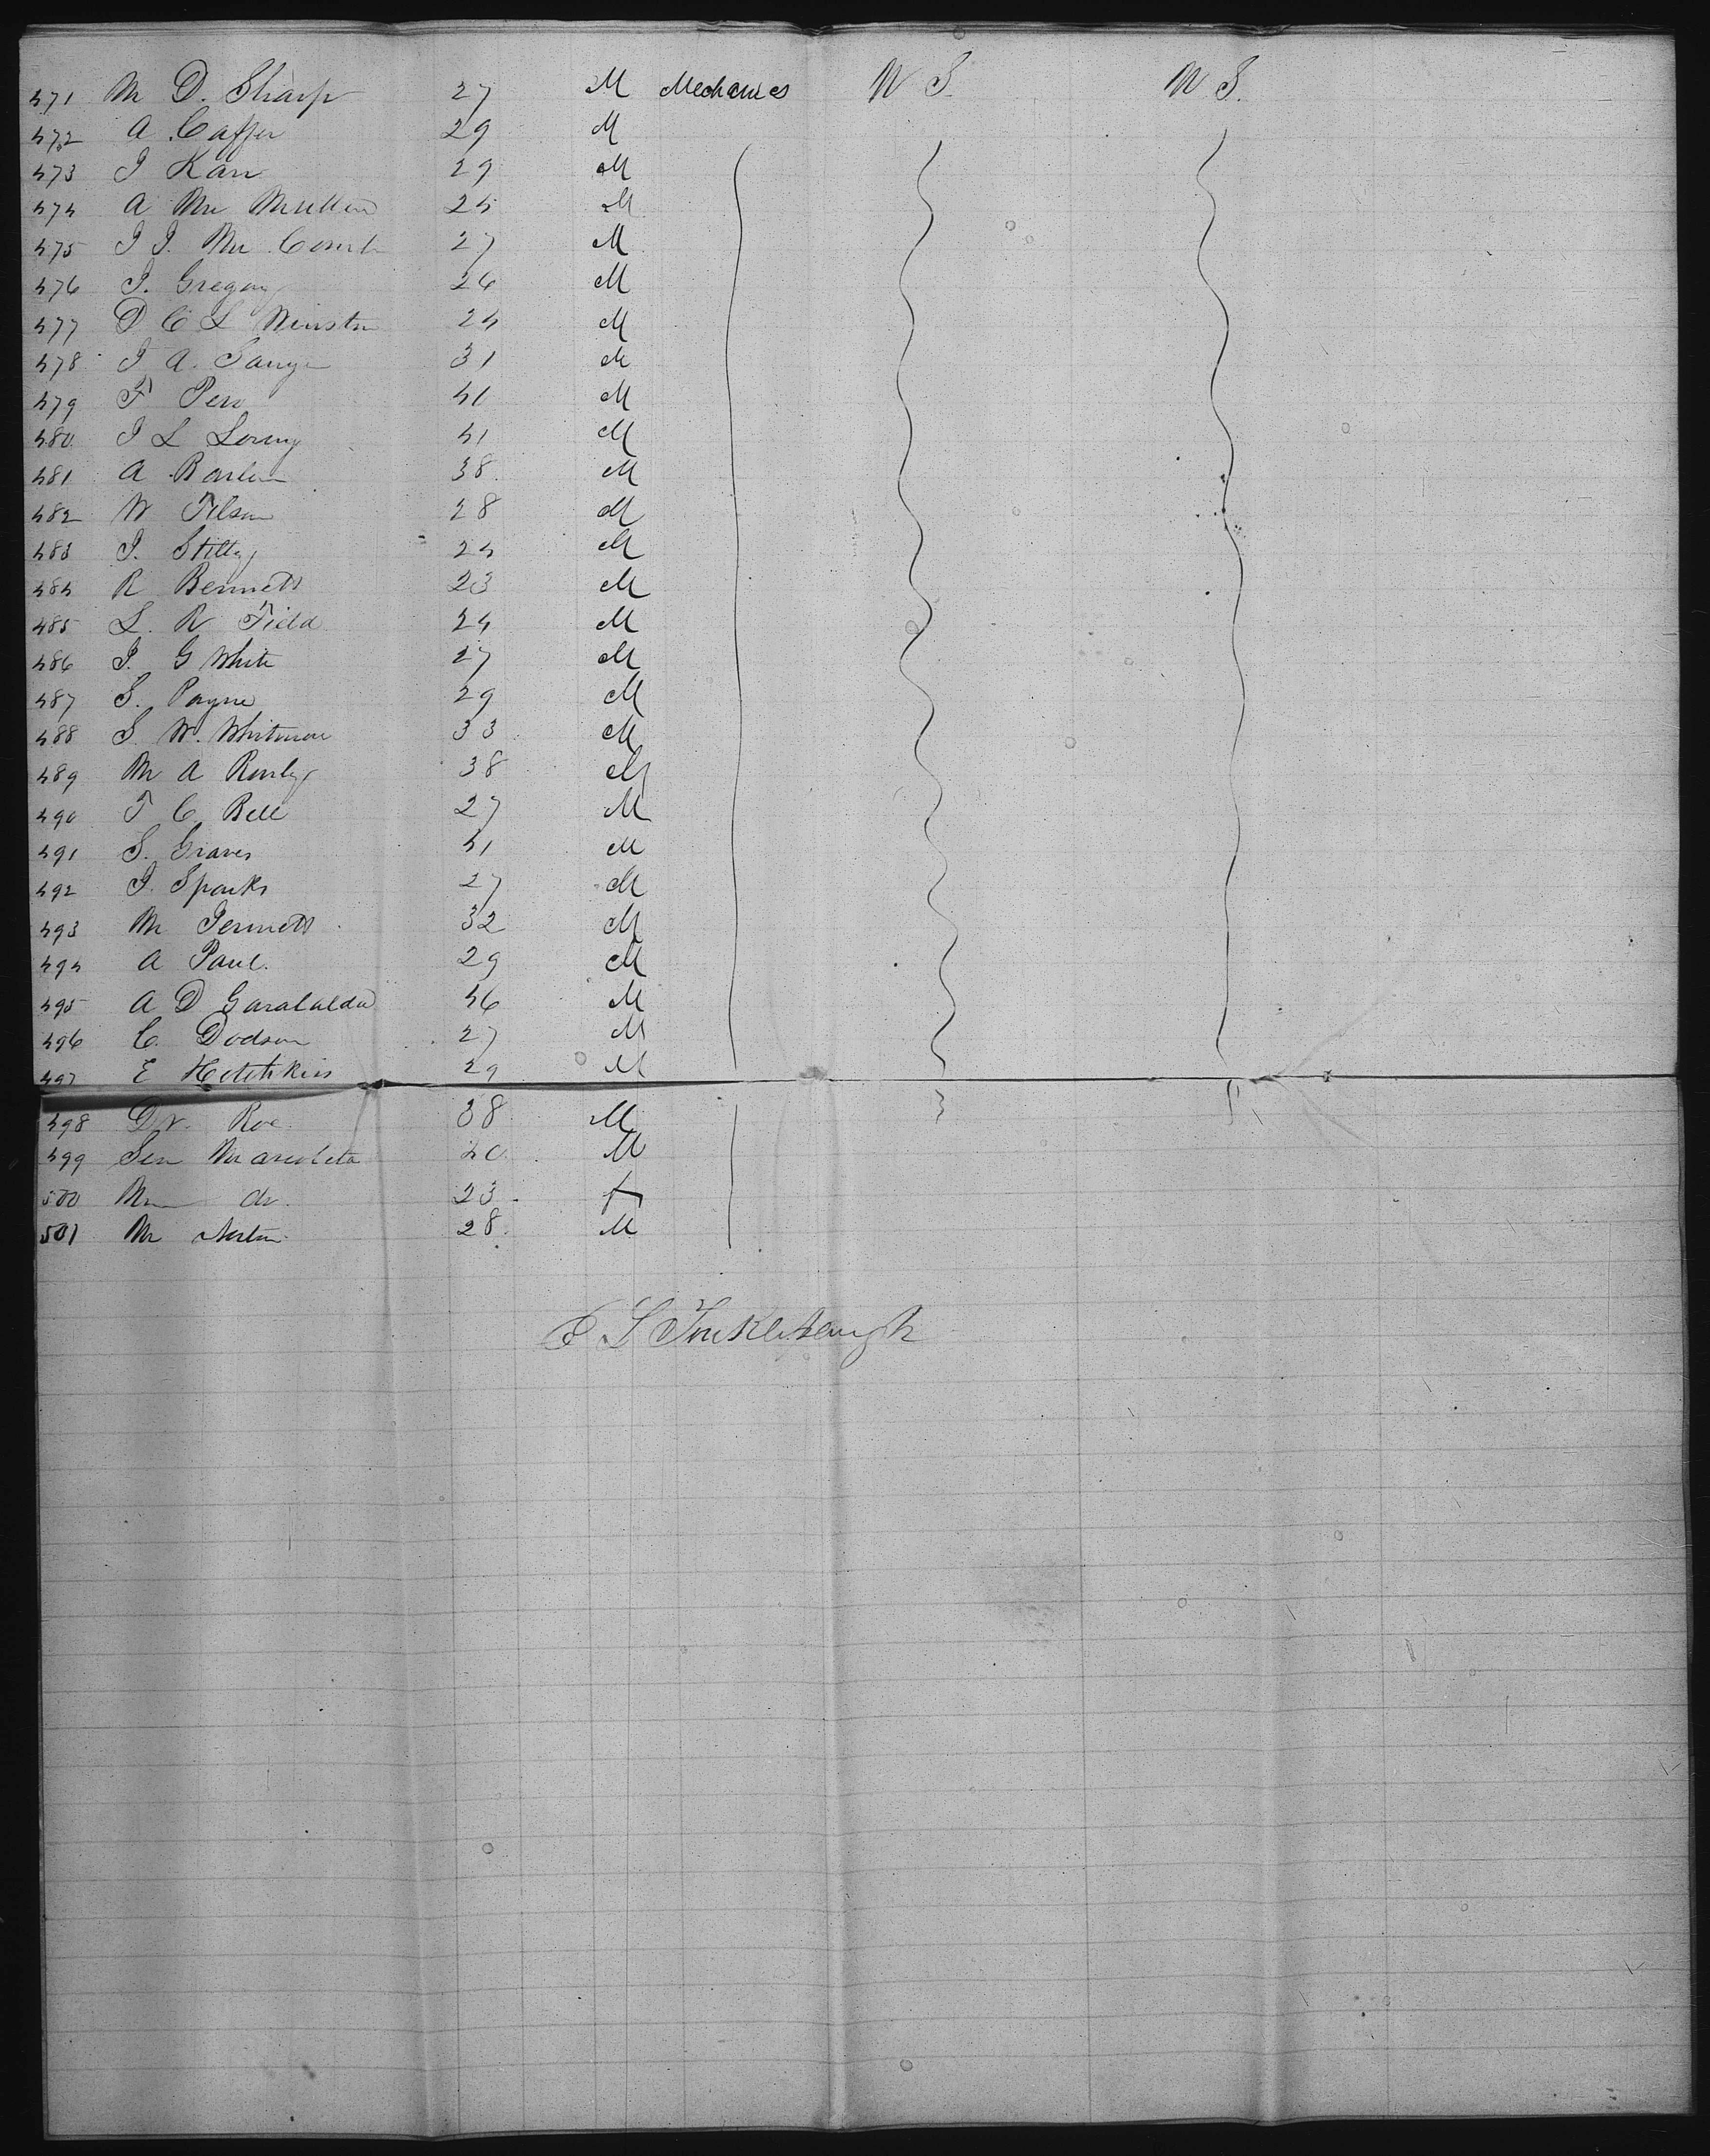 471 M D. Sharp 27 M Mechanics U S. U S.
472 A. Caffer 29 M
473 J Karr 29 M
474 A Mc Mullen 24 M
475 J J. Mc Court 27 M
476 J. Gregory 26 M
477 D C L Winston 24 M
478 J A. Sawyer 31 M
479 F 41 M
480 J L Loring 41 M
481 A Barlow 38. M
482 W Tilson 28 M
483 J. 24 M
484 R Bennett 23 M
485 L. R Field 24 M
486 J. G White 27 M
487 S. Payne 29 M
488 S W. Whitmore 33 M
489 M A 38 M
490 T C. Bell 27 M
491 S. Graves 41 M
492 J. Sparks 27 M
493 M Jennett 32 M
494 A Paul. 29 M
495 A D Garabalda 46 M
496 C. Dodson 27 M
497 E Hotchkins 29 M
498 Dr. Roe 38 M
499 Sen Marcoleta 40 M
500 Mrs do. 23 f
501 Mr Norton 28. M
E L Tinklepaugh